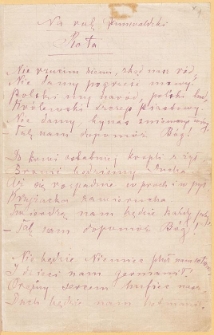 Rota
Nie rzucim ziemi, skąd nasz ród,
Nie damy pogrześć mowy!
Polski my naród, polski lud,
Królewski szczep piastowy,
Nie damy
Tak nam dopomóż Bóg!
Do krwi ostatniej kropli z żył
Bronić będziemy Ducha
Aż się rozpadnie w proch i w pył
Krzyżacka zawierucha
Twierdzą nam będzie każdy próg
Tak nam dopomóż Bóg!
Nie będzie Niemiec pluł
I dzieci nam germanił
Orężny hufiec nasz
Duch będzie nam